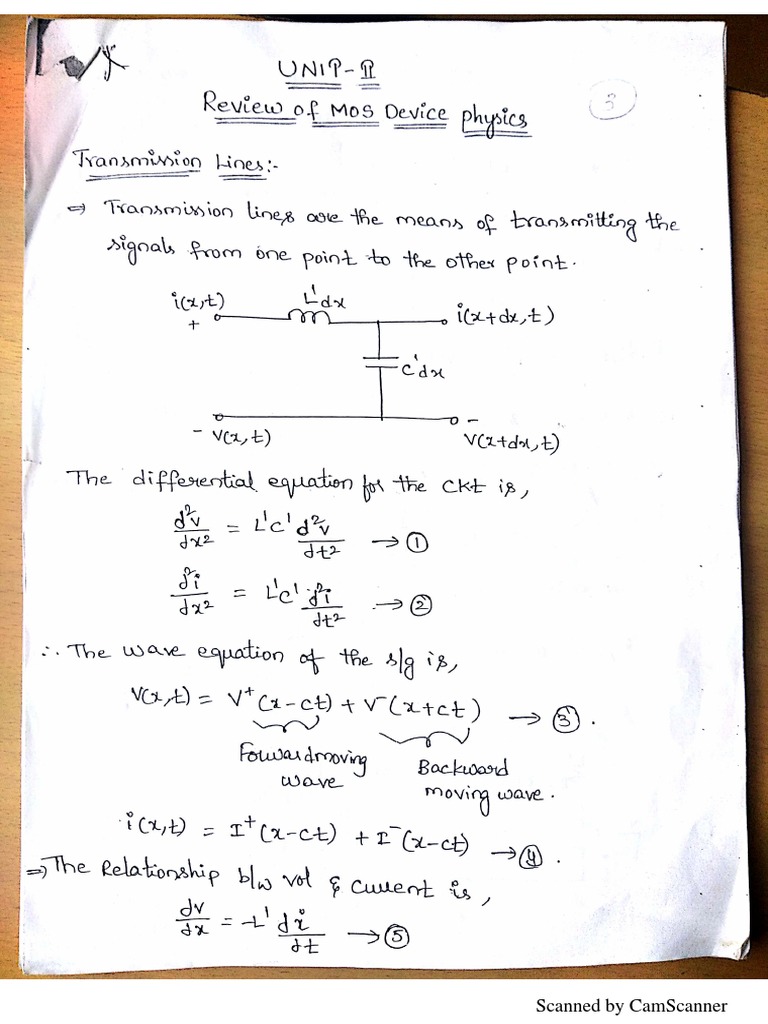 UNIT-II
Review of MOS Device Physics
3
Transmission Lines:-
⇒ Transmission lines are the means of transmitting the
signals from one point to the other point.
i(x,t) L'dx i(x+dx,t)
+
C'dx
- V(x,t) - V(x+dx,t)
The differential equation for the ckt is,
d²v/dx² = L'C' d²v/dt² → ①
d²i/dx² = L'C' d²i/dt² → ②
∴ The wave equation of the s/g is,
V(x,t) = V⁺(x-ct) + V⁻(x+ct) → ③.
Forwardmoving Backward
wave moving wave.
i(x,t) = I⁺(x-ct) + I⁻(x-ct) → ④.
⇒ The Relationship b/w vol & current is,
dv/dx = -L' di/dt → ⑤
Scanned by CamScanner